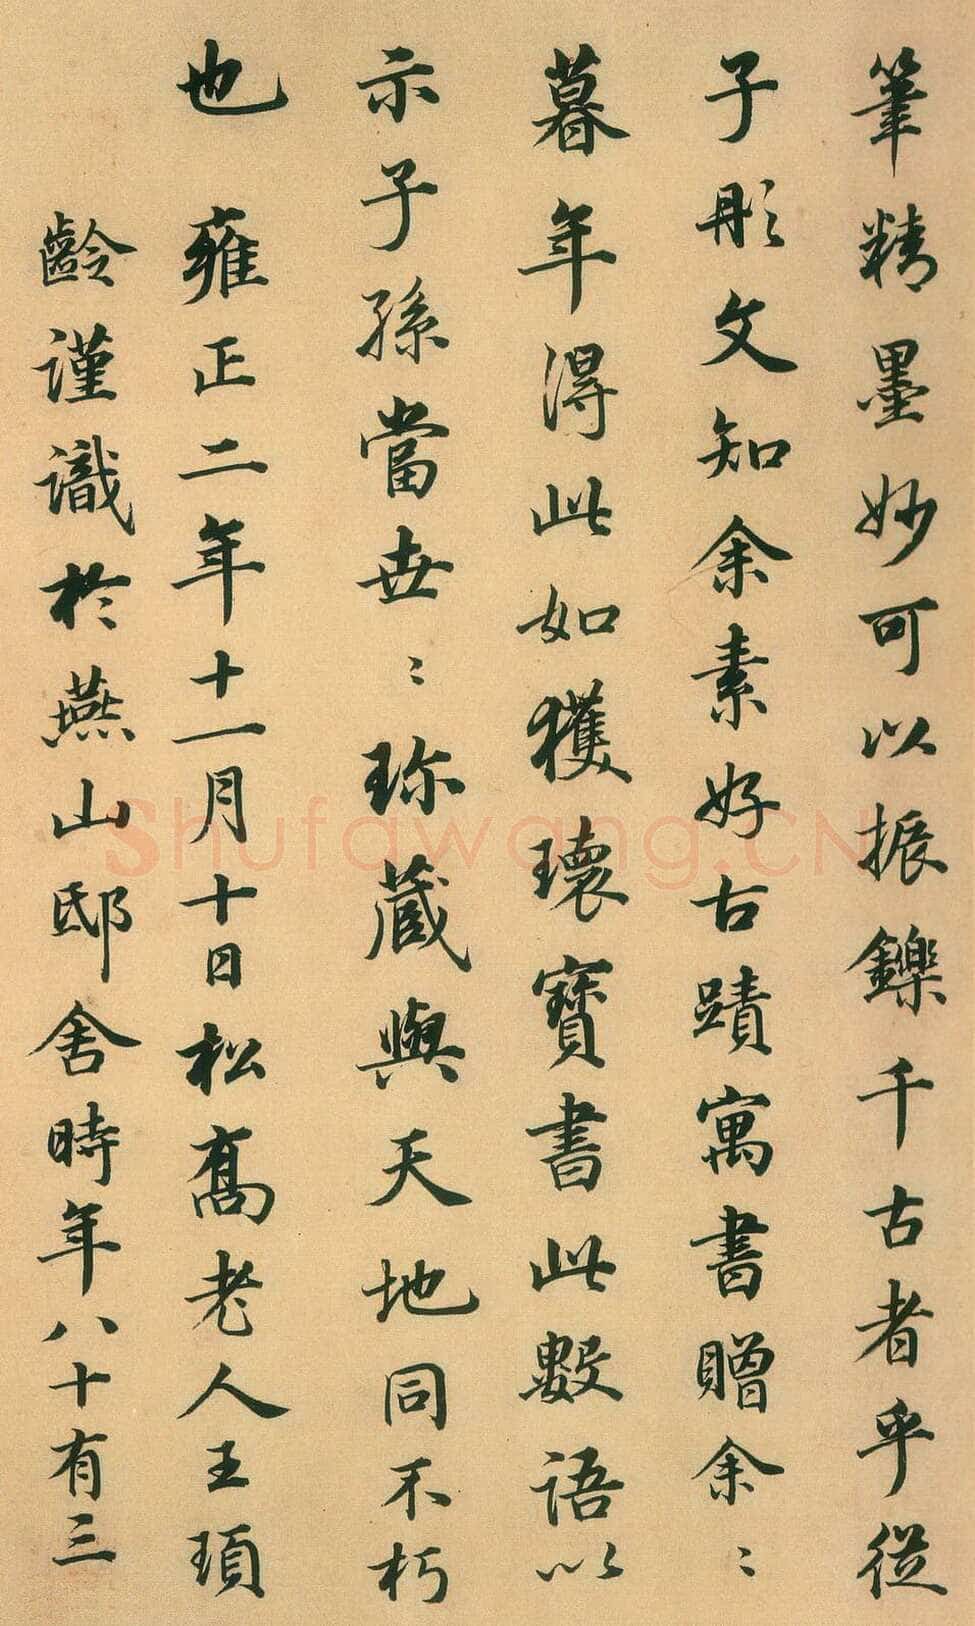 筆精墨妙可以振鑠千古者乎從
子彤文知余素好古蹟寓書贈余〻
暮年得此如獲瓌寶書此數語以
示子孫當世〻珎蔵與天地同不朽
也 雍正二年十一月十日松髙老人王頊
齡謹識於燕山邸舍時年八十有三
Shufawang.CN